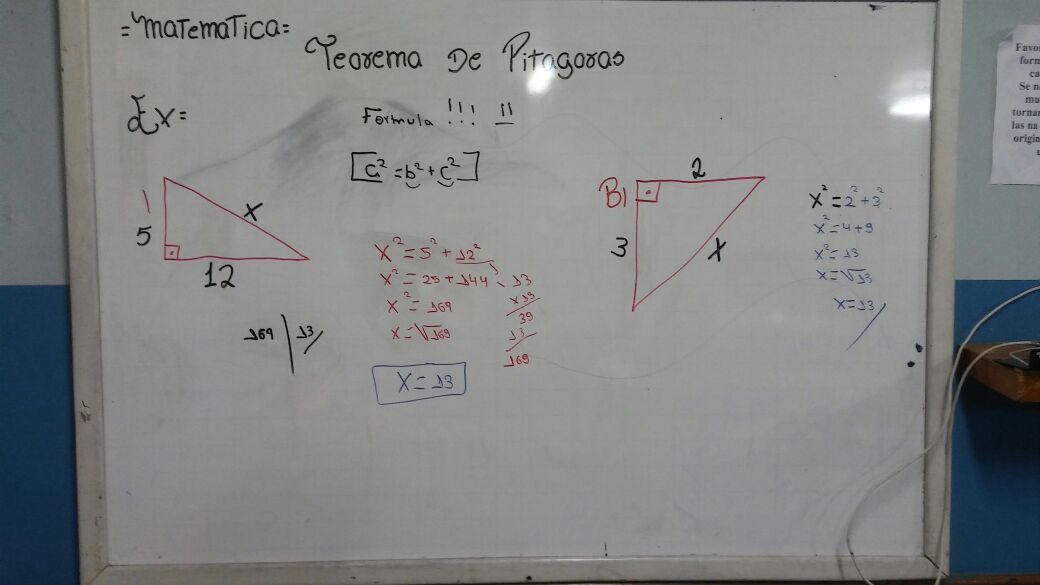 =Matematica=
Teorema De Pitagoras
Ex=
Formula !!! !!
[c²=b²+c²]
5
x
12
x²=5²+12²
x²=25+144
x²=169
x=√169
x=13
13
x13
39
13
169
169 | 13/
B)
2
3
x
x²=2²+3²
x²=4+9
x²=13
x=√13
x=13/
Favo
form
ca
Se n
mu
torna
las na
origin